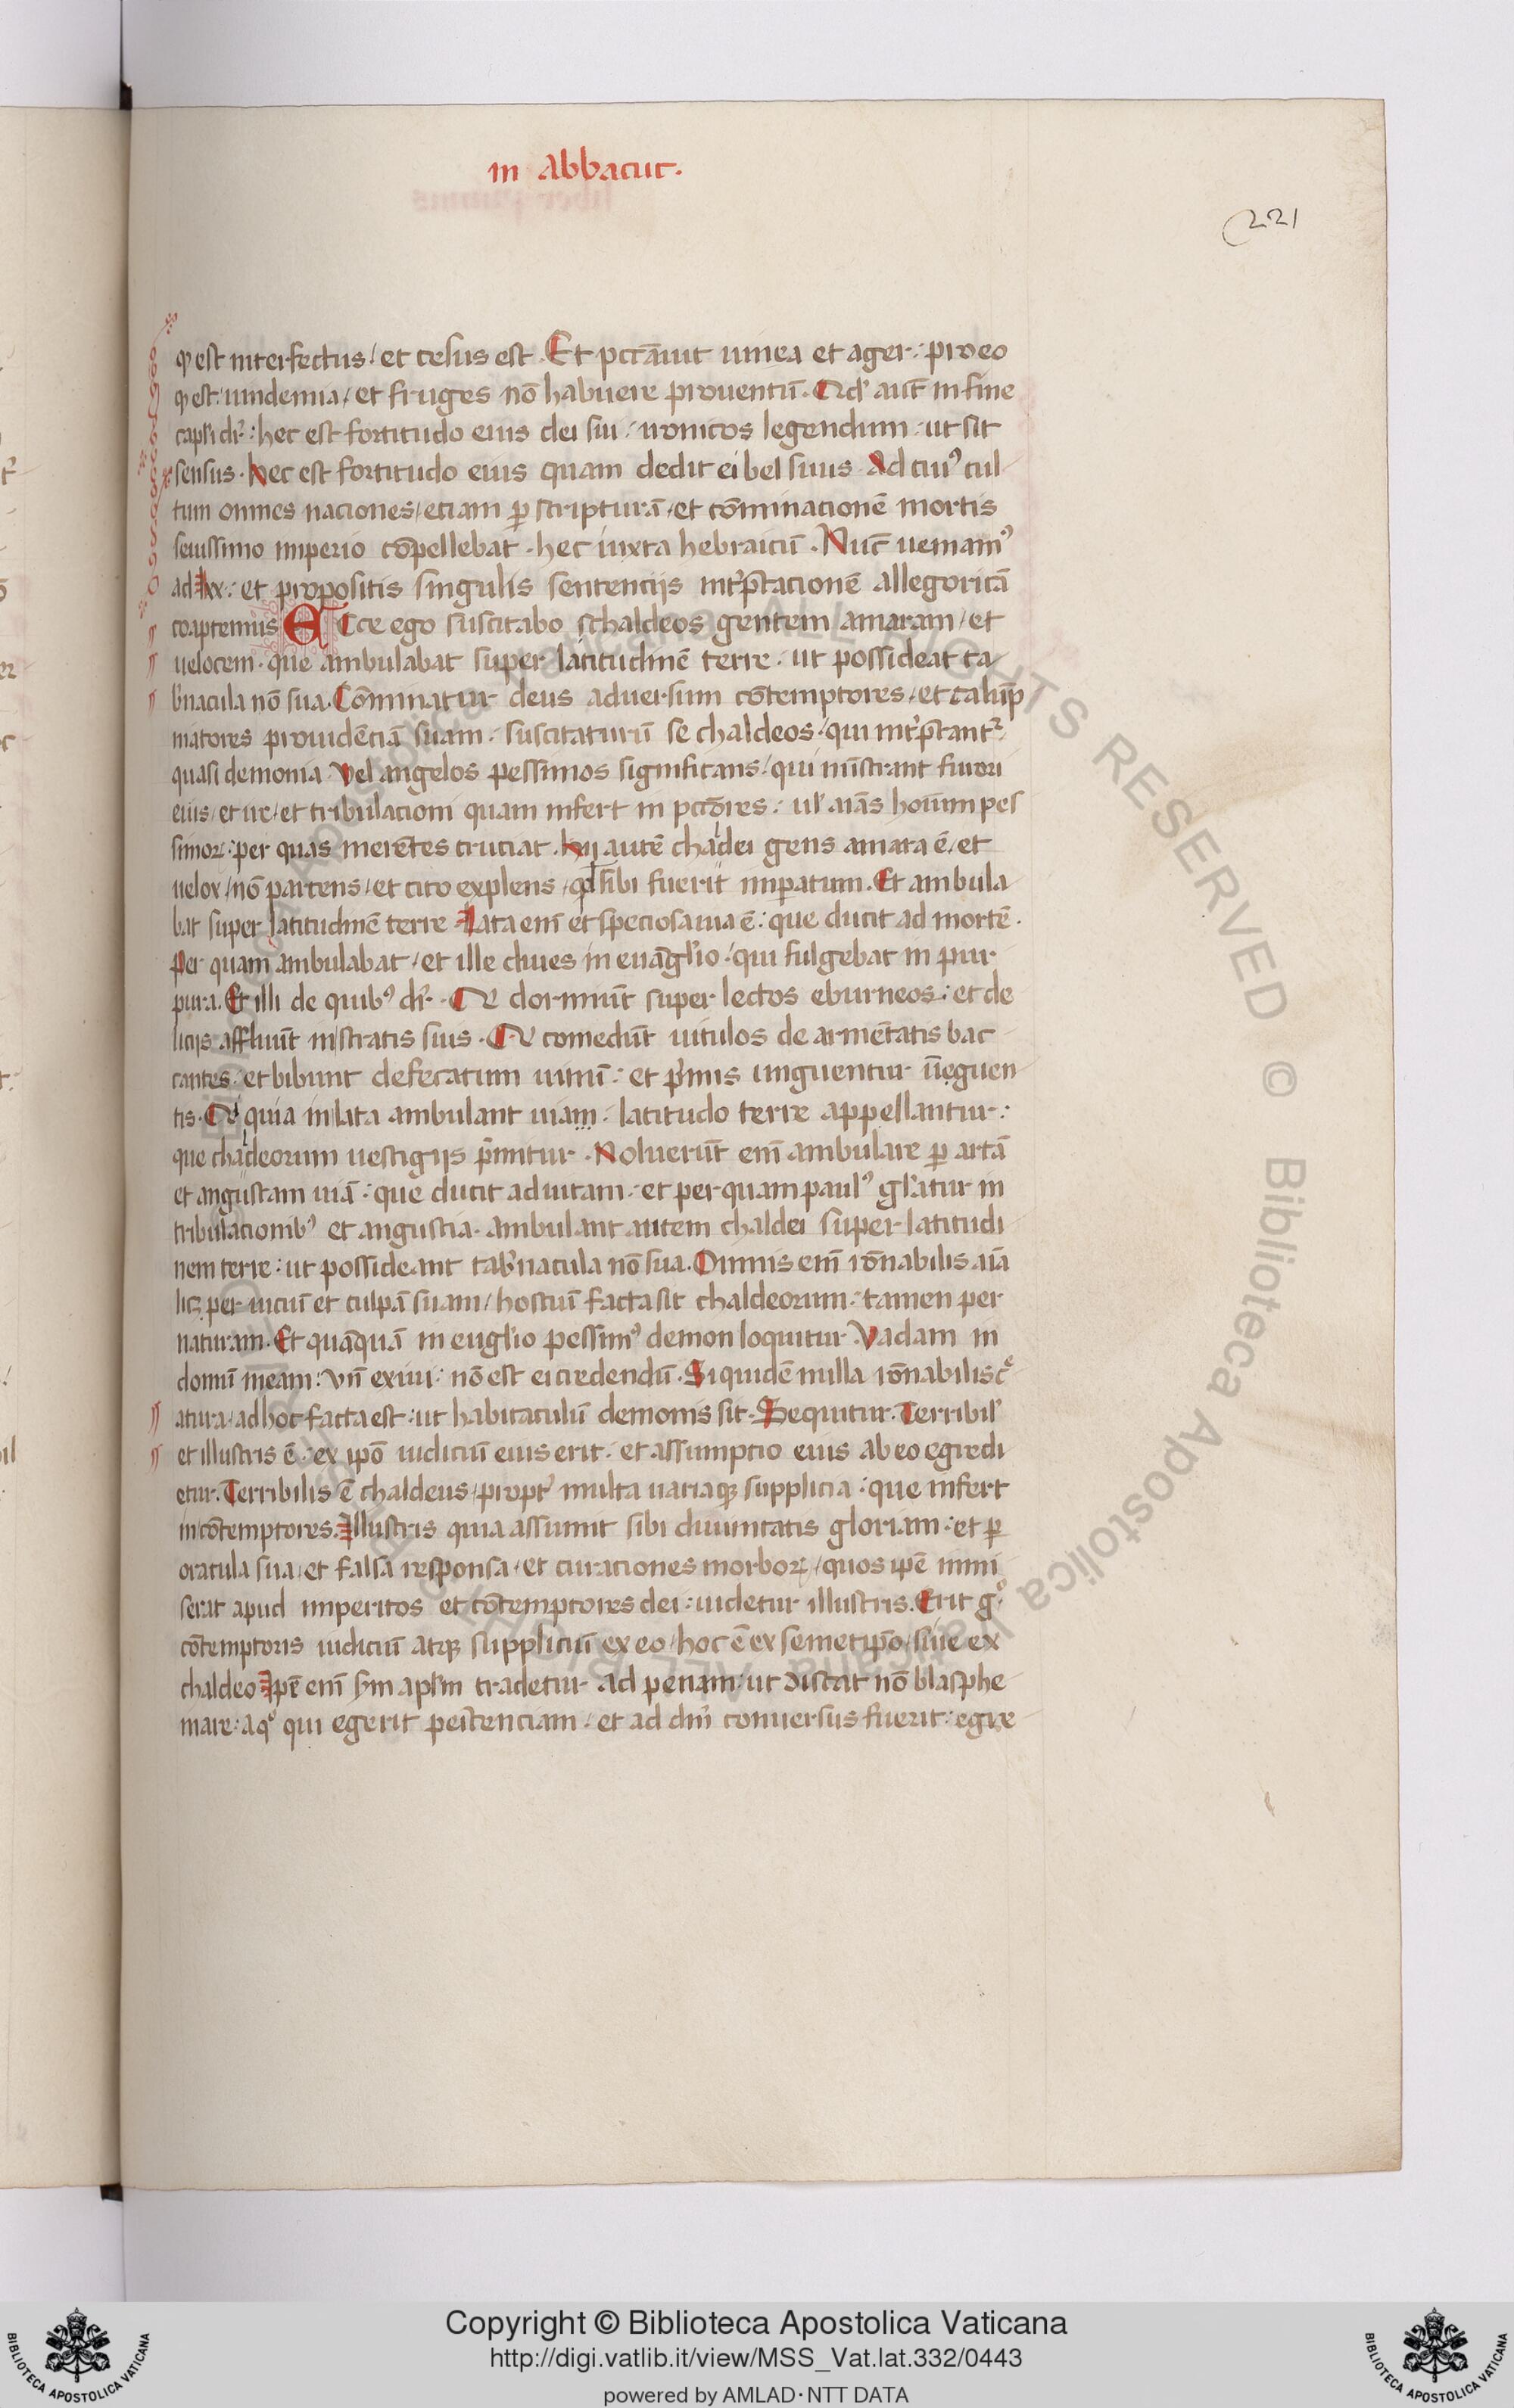 in Abbacuc.
221
qͥ est interfectus / et cesus est. Et pctāuit uinea et ager : pro eo
qͥ est uindemia / et fruges nō habuere prouentū. Qd' aut̄ in fine
capl'i dr̄ : hec est fortitudo eius dei sui : yronicos legendum : ut sit
sensus. Hec est fortitudo eius quam dedit ei bel suus. Ad cuiꝰ cul
tum omnes naciones / etiam ꝑ scripturā / et cōminacionē mortis
seuissimo imperio cōpellebat. hec iuxta hebraicū. Nūc ueniamꝰ
ad lxx : et propositis singulis sentencijs int'p̄tacionē allegoricā
coaptemus ECce ego suscitabo schaldeos gentem amaram / et
uelocem. que ambulabat super latitudinē terre. ut possideat ta
b'nacula nō sua. Cōminatur deus aduersum cōtemptores / et calūp
niatores prouidēciā suam. suscitaturū se chaldeos. qui int'p̄tant'
quasi demonia. Vel angelos pessimos significans / qui mīstrant furori
eius / et ire / et tribulacioni quam infert in pctōres : ul' aīas hoīum pes
simoꝝ : per quas merētes cruciat. Hij autē chaldei gens amara ē / et
uelox / nō parcens / et cito explens / qd sibi fuerit imperatum. Et ambula
bat super latitudinē terre. Lata enī et speciosa uia ē : que ducit ad mortē.
Per quam ambulabat / et ille diues in euāgl'io / qui fulgebat in pur
pura. Et illi de quibꝰ dr̄. Qͥ dormiūt super lectos eburneos : et de
licijs affluūt in stratis suis. Qͥ comedūt uitulos de armētatis bac
cantes : et bibunt defecatum uinū : et p'mis unguentur ūeguen
tis. Qͥ quia in lata ambulant uiam. latitudo terre appellantur :
que chaldeorum uestigijs p̄mitur. Noluerūt enī ambulare ꝑ artā
et angustam uiā : que ducit ad uitam. et per quam paulꝰ gl'atur in
tribulacionibꝰ et angustia. ambulant autem chaldei super latitudi
nem terre : ut possideant tab'nacula nō sua. Omnis enī rōnabilis aīa
licꝫ per uiciū et culpā suam / hostiū facta sit chaldeorum : tamen per
naturam. Et quāquā in eugl'io pessimꝰ demon loquitur. Vadam in
domū meam : vn̄ exiui : nō est ei credendū. Siquidē nulla rōnabilis c'e
atura / ad hoc facta est : ut habitaculū demonis sit. Sequitur. Terribil'
et illustris ē : ex ip̄o iudiciū eius erit. et assumptio eius ab eo egredi
etur. Terribilis ē chaldeus / propt' multa uariaqꝫ supplicia : que infert
in cōtemptores. Illustris quia assumit sibi diuinitatis gloriam : et ꝑ
oracula sua / et falsa responsa / et curationes morboꝝ / quos ip̄e inmi
serat apud imperitos et cōtemptores dei : uidetur illustris. Erit gͦ
cōtemptoris iudiciū atqꝫ suppliciū ex eo / hoc ē ex semetip̄o / siue ex
chaldeo. Ip̄e enī scdm apl'm tradetur ad penam : ut discat nō blasphe
mare : a qͦ qui egerit penitenciam. et ad dn̄m conuersus fuerit : egre
Copyright © Biblioteca Apostolica Vaticana
http://digi.vatlib.it/view/MSS_Vat.lat.332/0443
powered by AMLAD·NTT DATA